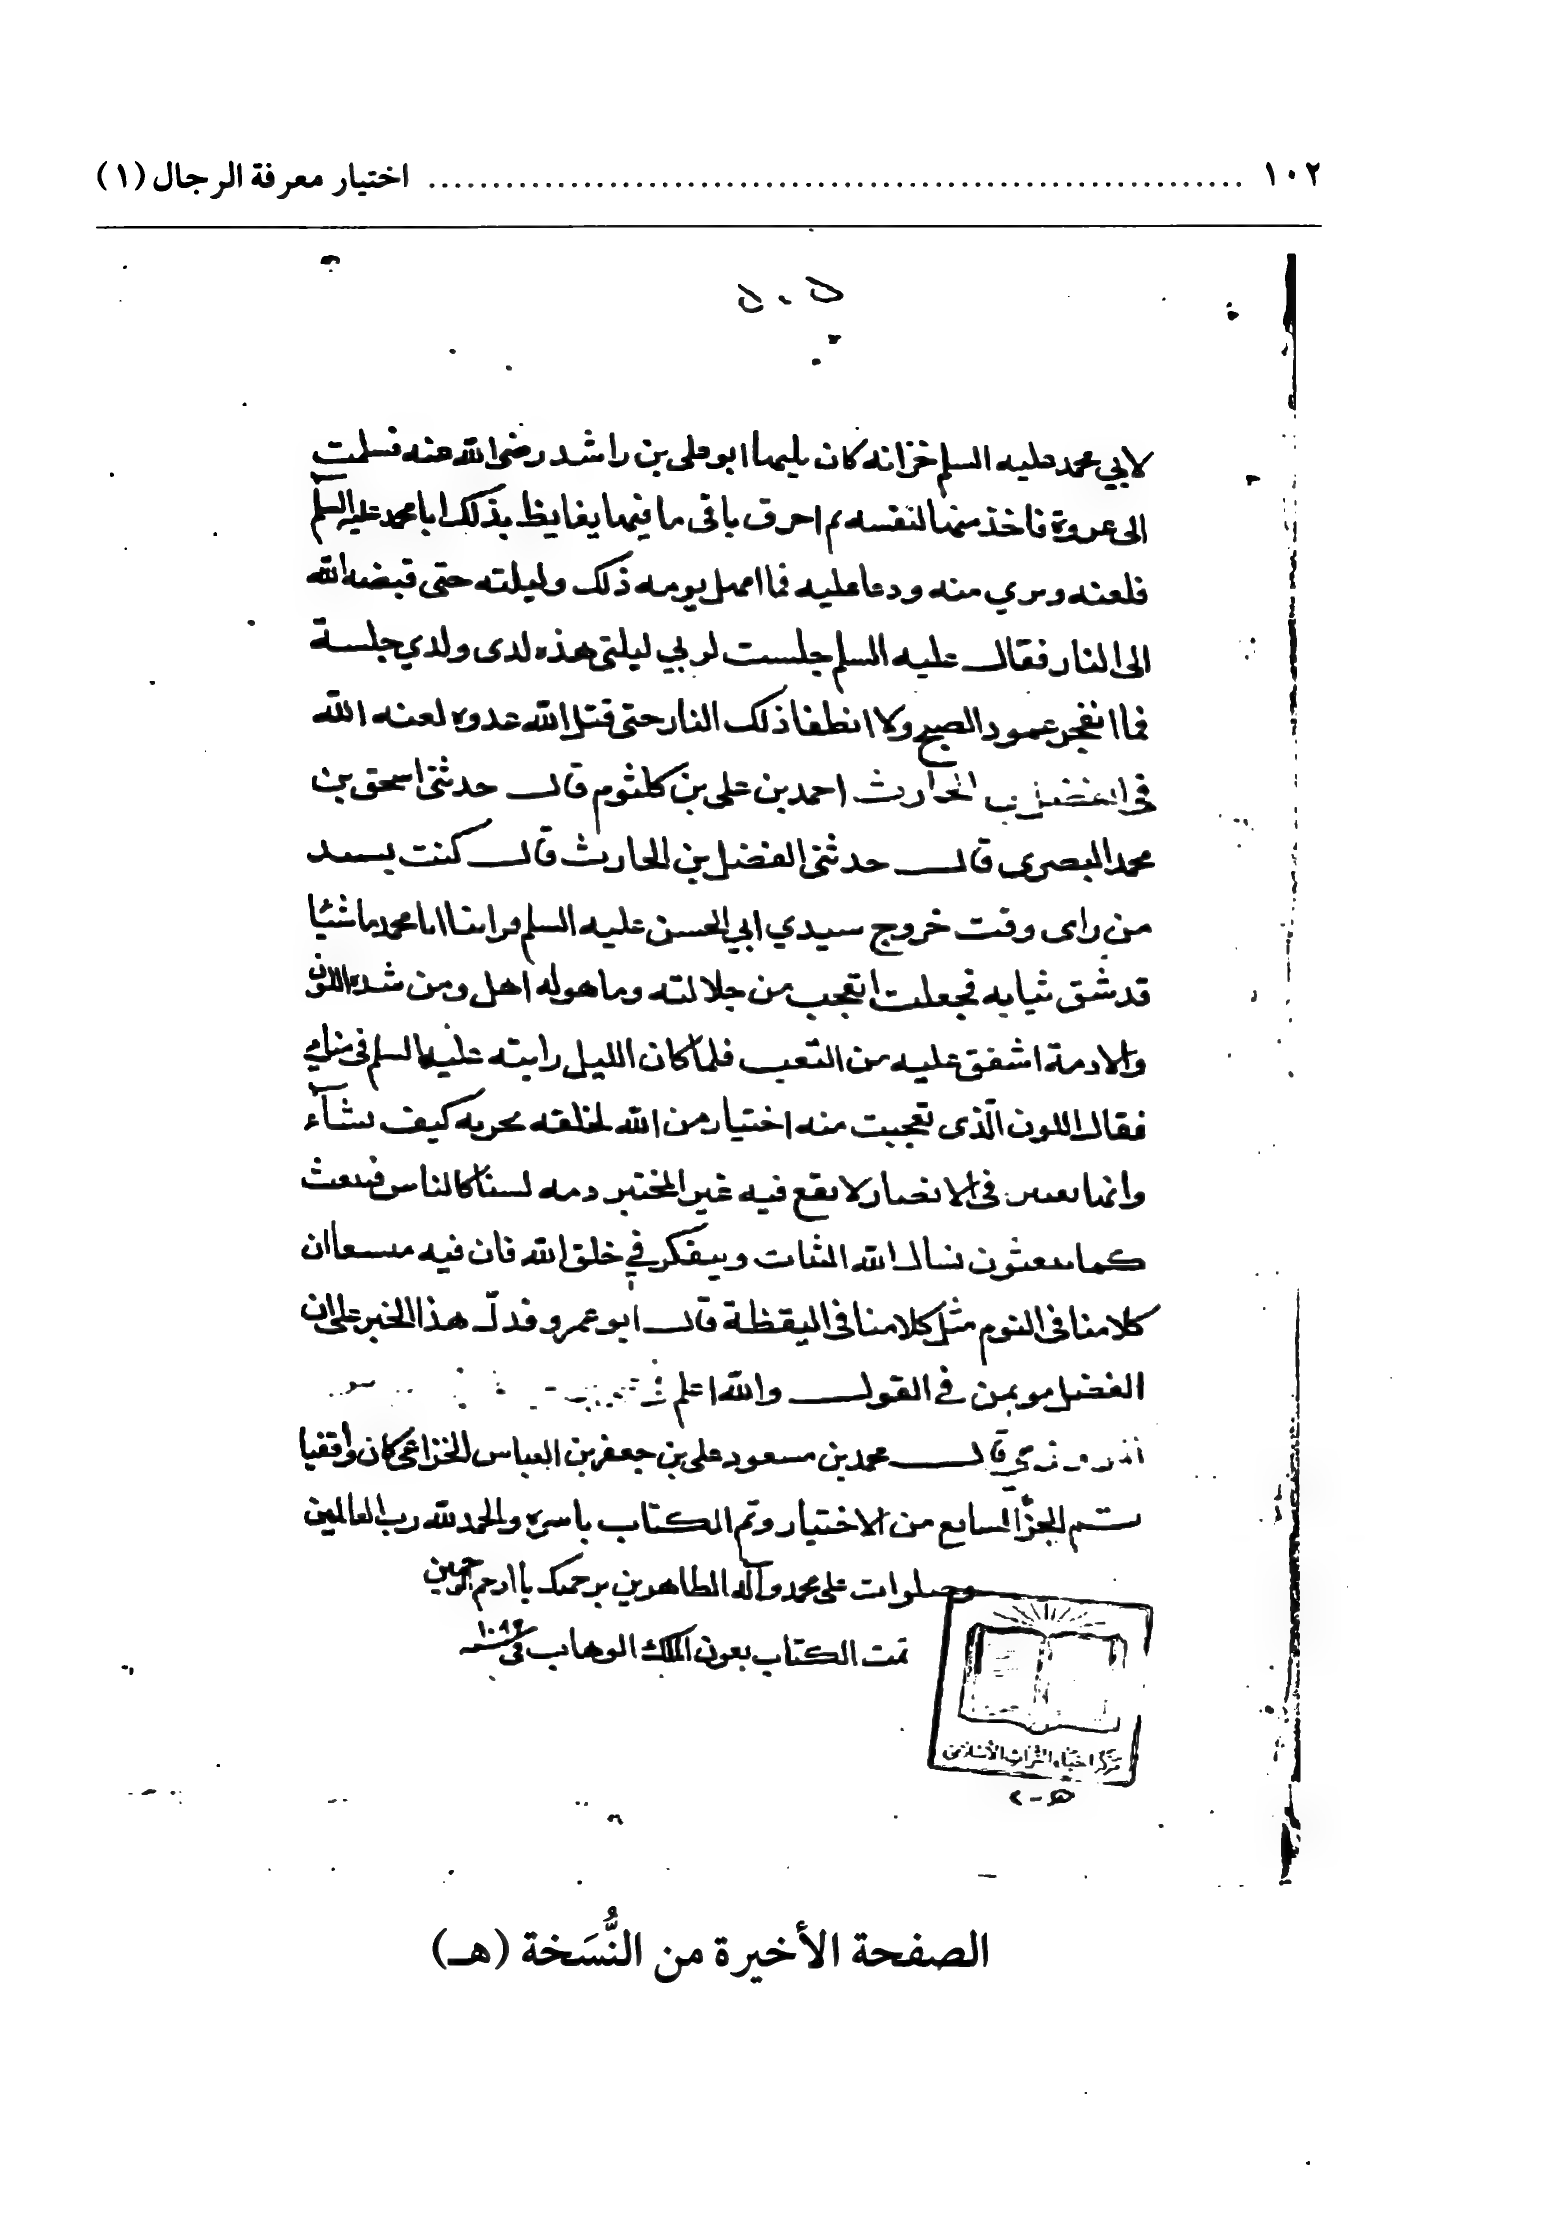 ١٠٢ ........ اختيار معرفة الرجال (١)
٥٠٥
لابي محمد عليه السلم خزانه كان يليها ابو علي بن راشد رضى الله عنه فسلمت
الى عروة فاخذ منها لنفسه ثم احرق باقى ما فيها يغايظ بذلك ابا محمد عليه السلم
فلعنه وبري منه ودعا عليه فما امهل يومه ذلك وليلته حتى قبضه الله
الى النار فقال عليه السلم جلست لربي ليلتى هذه لدى ولدي جلسة
فما انفجر عمود الصبح ولا انطفا ذلك النار حتى قتل الله عدوه لعنه الله
في الفضل بن الحارث احمد بن على بن كلثوم قال حدثنى اسحق بن
محمد البصرى قال حدثنى الفضل بن الحارث قال كنت بسر
من راى وقت خروج سيدي ابي الحسن عليه السلم فراينا ابا محمد ماشيا
قد شق ثيابه فجعلت اتعجب من جلالته وما هو له اهل ومن شدة اللون
والادمة اشفق عليه من التعب فلما كان الليل رايته عليه السلم في منامي
فقال اللون الذى تعجبت منه اختيار من الله لخلقه يجريه كيف يشاء
وانها فى الابصار لا يقع فيه غير المختبر ذمه لسنا كالناس فنتعب
كما يتعبون نسال الله الثبات ويتفكر في خلق الله فان فيه متسعا ان
كلامنا فى النوم مثل كلامنا فى اليقظة قال ابو عمرو فدل هذا الخبر على ان
الفضل موتمن في القول والله اعلم
قال محمد بن مسعود على بن جعفر بن العباس الخزاعى كان واقفيا
تم الجزؤ السابع من الاختيار وتم الكتاب باسره والحمد لله رب العالمين
وصلوات على محمد وآله الطاهرين برحمتك يا ارحم الرحمين
تمت الكتاب بعون الملك الوهاب فى سنه
مركز احياء التراث الاسلامي
الصفحة الأخيرة من النُّسَخة (هـ)